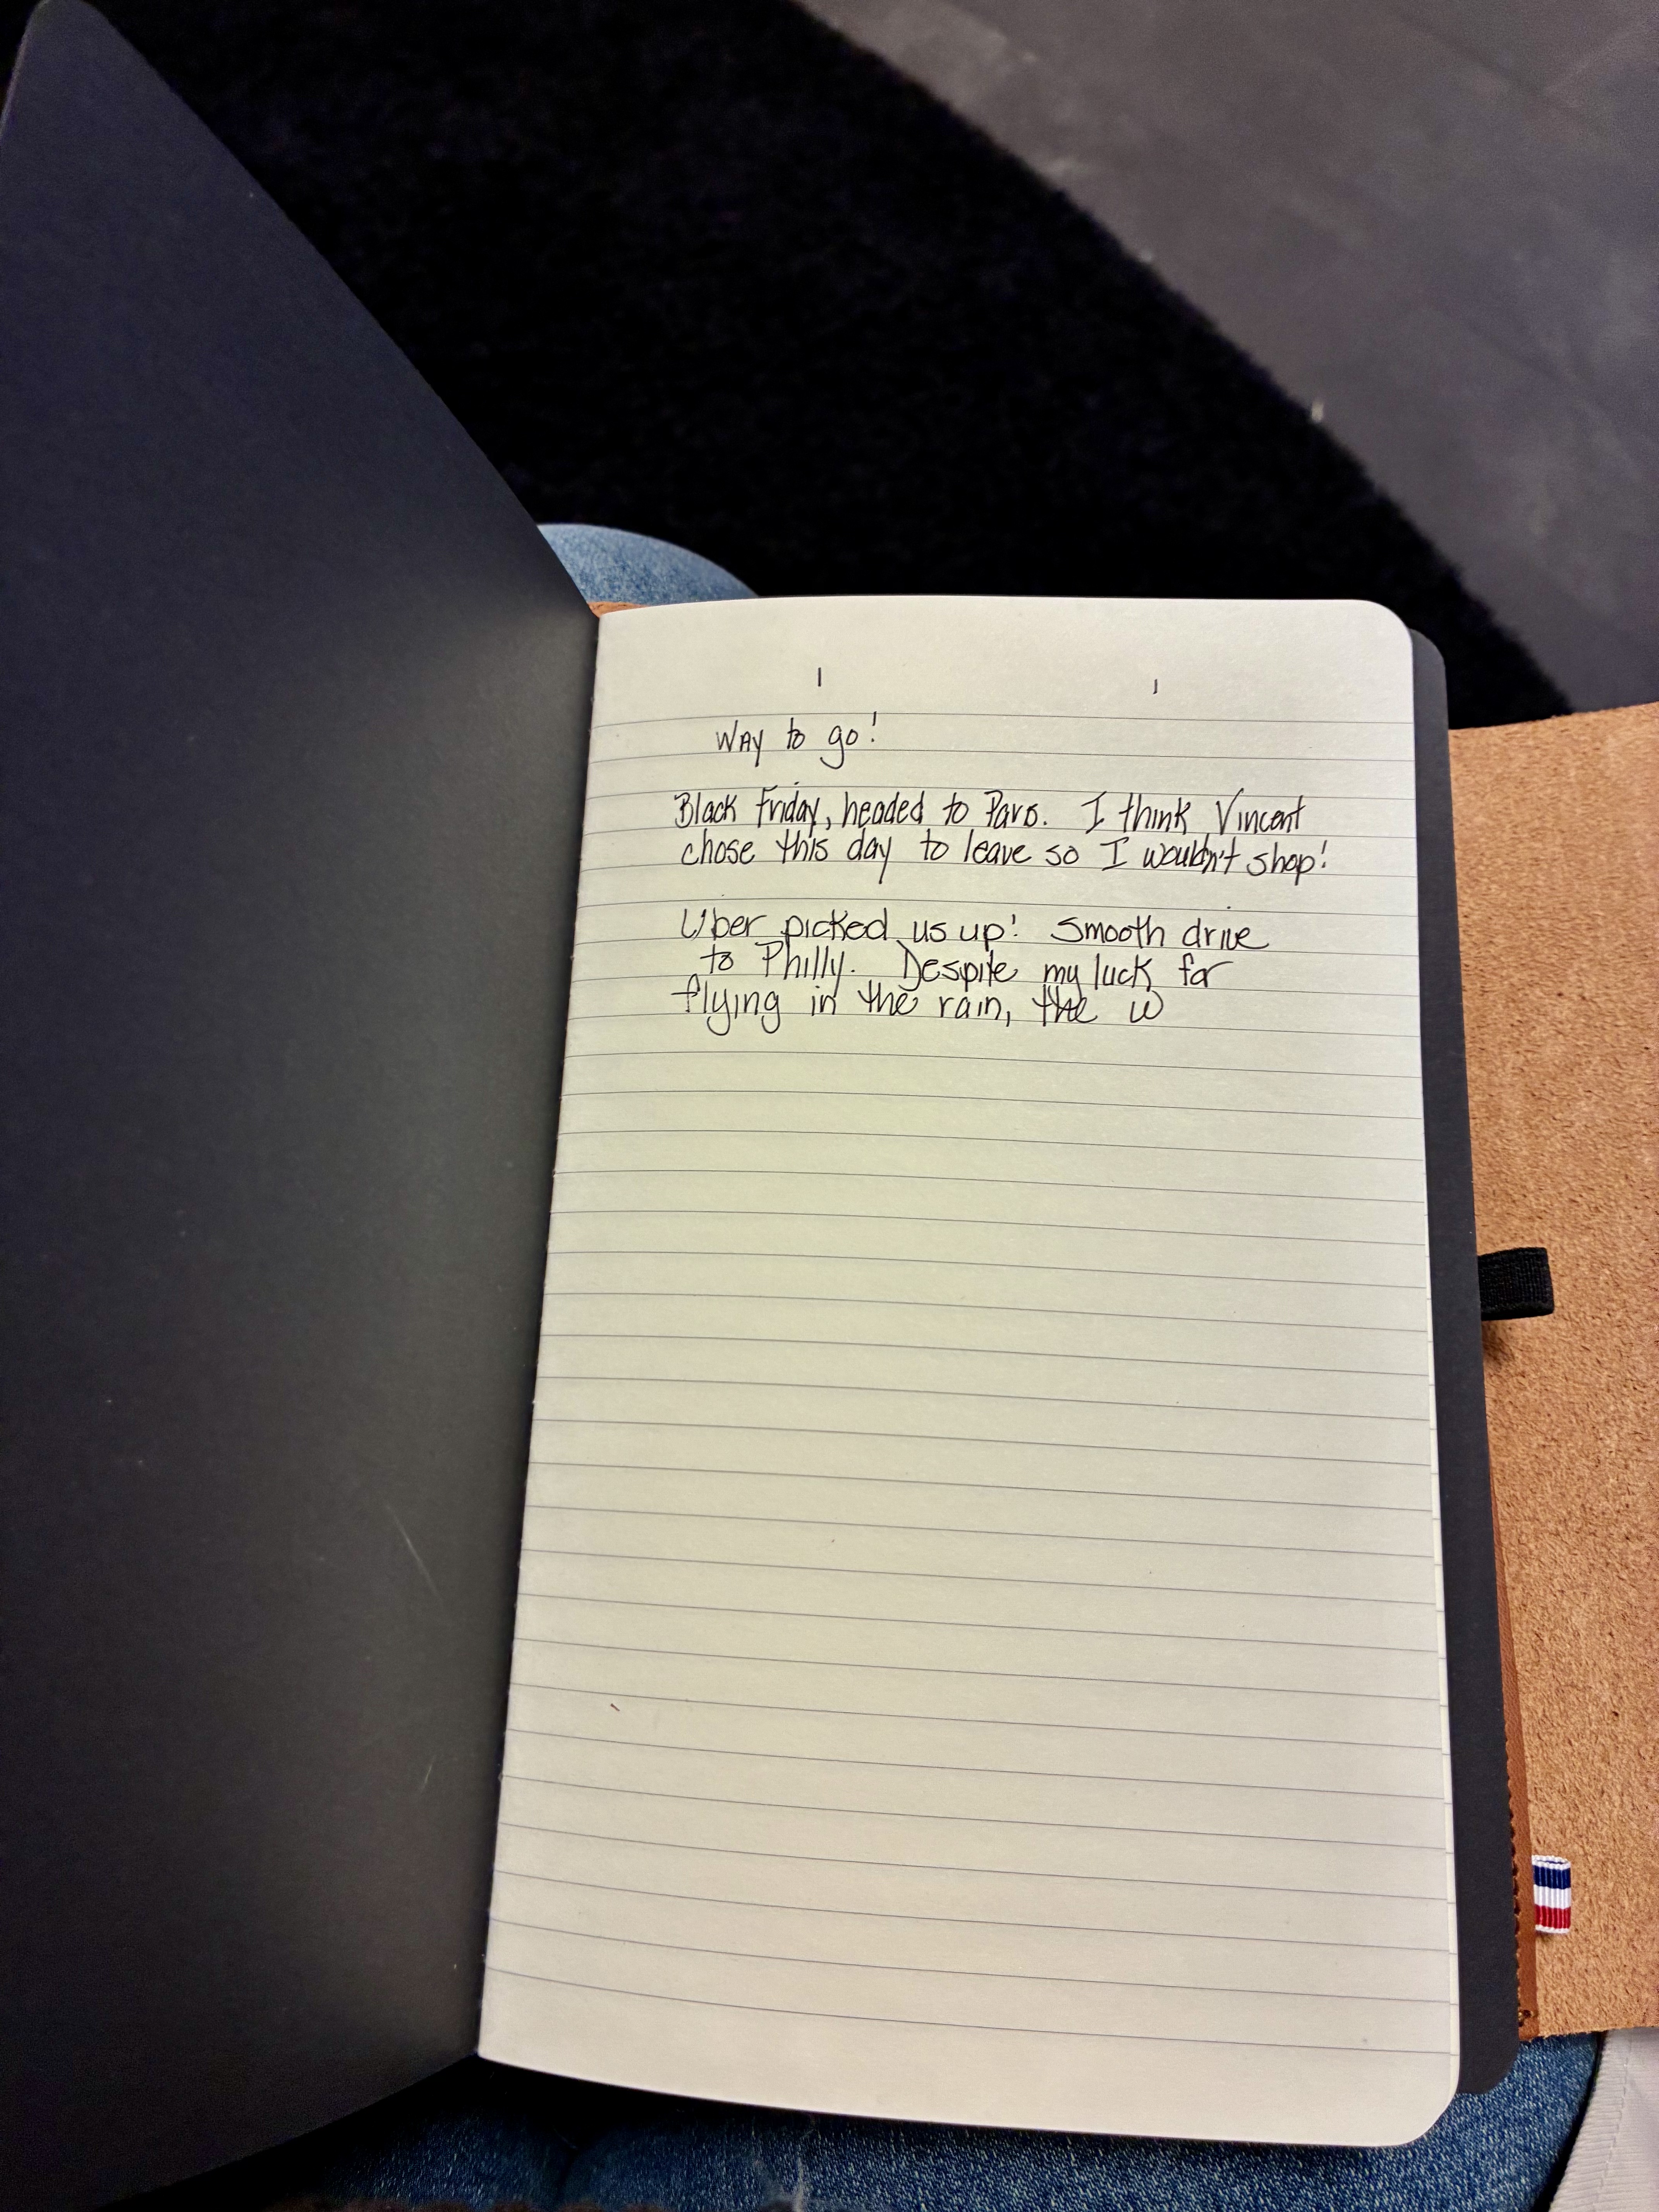 Way to go!
Black Friday, headed to Paris. I think Vincent
chose this day to leave so I wouldn't shop!
Uber picked us up! Smooth drive
to Philly. Despite my luck for
flying in the rain, the w